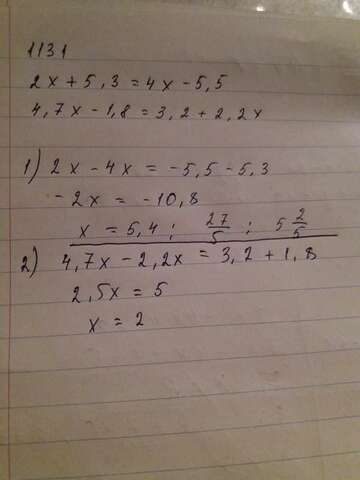 1131
2x + 5,3 = 4x - 5,5
4,7x - 1,8 = 3,2 + 2,2x
1) 2x - 4x = -5,5 - 5,3
- 2x = -10,8
x = 5,4 ; 27/5 ; 5 2/5
2) 4,7x - 2,2x = 3,2 + 1,8
2,5x = 5
x = 2